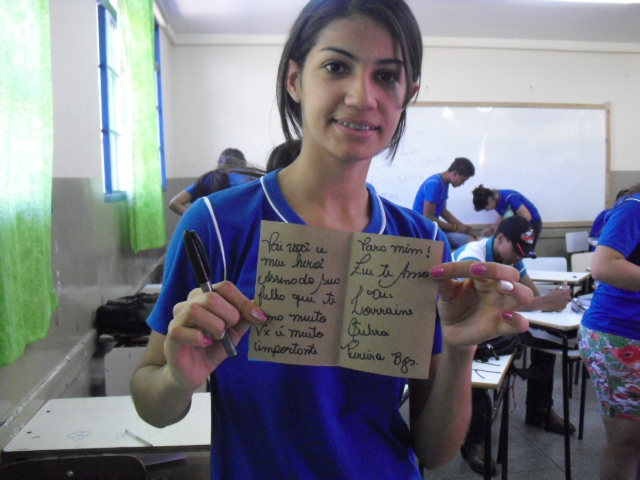 Pai você u
meu herói
Assinado sua
filha qui te
amo muito
Vx é muito
importante
Para mim!
Eu te Amo
Ass:
Lorraine
Pereira Bjs.